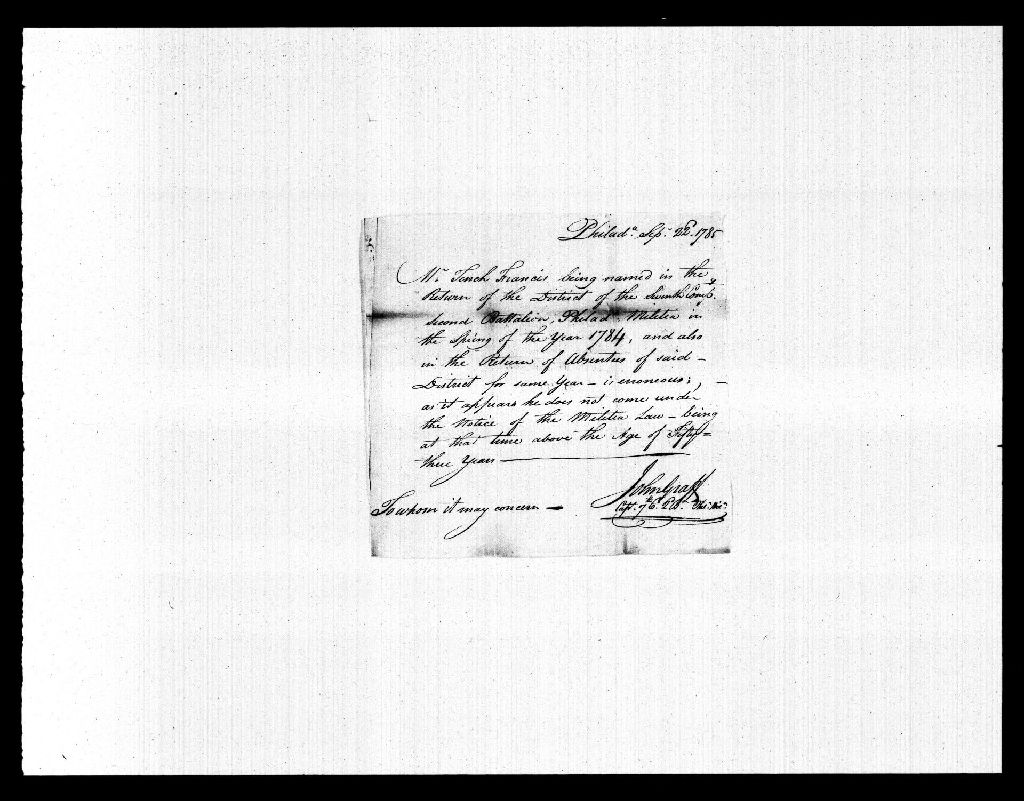 Philad.ª Sep.r 22.d 1785
Mr. Tench Francis being named in the
Return of the District of the Seventh Comp.y
Second Battalion, Philad.ª Militia in
the Spring of the Year 1784, and also
in the Return of Absentees of said –
District for same Year – is erroneous, –
as it appears he does not come under
the Notice of the Militia Law – being
at that time above the Age of Fifty=
three Years
John Graff
Capt. 7th C. 2d B.
To whom it may concern –